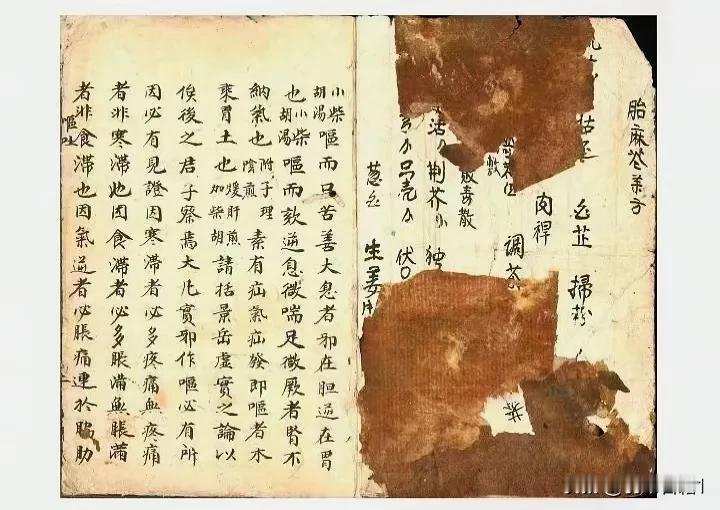 胎麻
白芷 掃粉
肉桿
調茶
敗毒散
活 荆芥 独
葱白 生姜
小柴胡湯嘔而口苦善大息者邪在胆逆在胃
也小柴胡湯嘔而欬逆息微喘足微厥者腎不
納氣也附子理陰煎素有疝氣疝發即嘔者木
乘胃土也煖肝煎加柴胡請括景岳虛實之論以
俟後之君子察焉大凡實邪作嘔必有所
因必有見證因寒滯者必多疼痛無疼痛
者非寒滯也因食滯者必多脹滿無脹滿
者非食滯也因氣逆者必脹痛連於脇肋
嘔吐